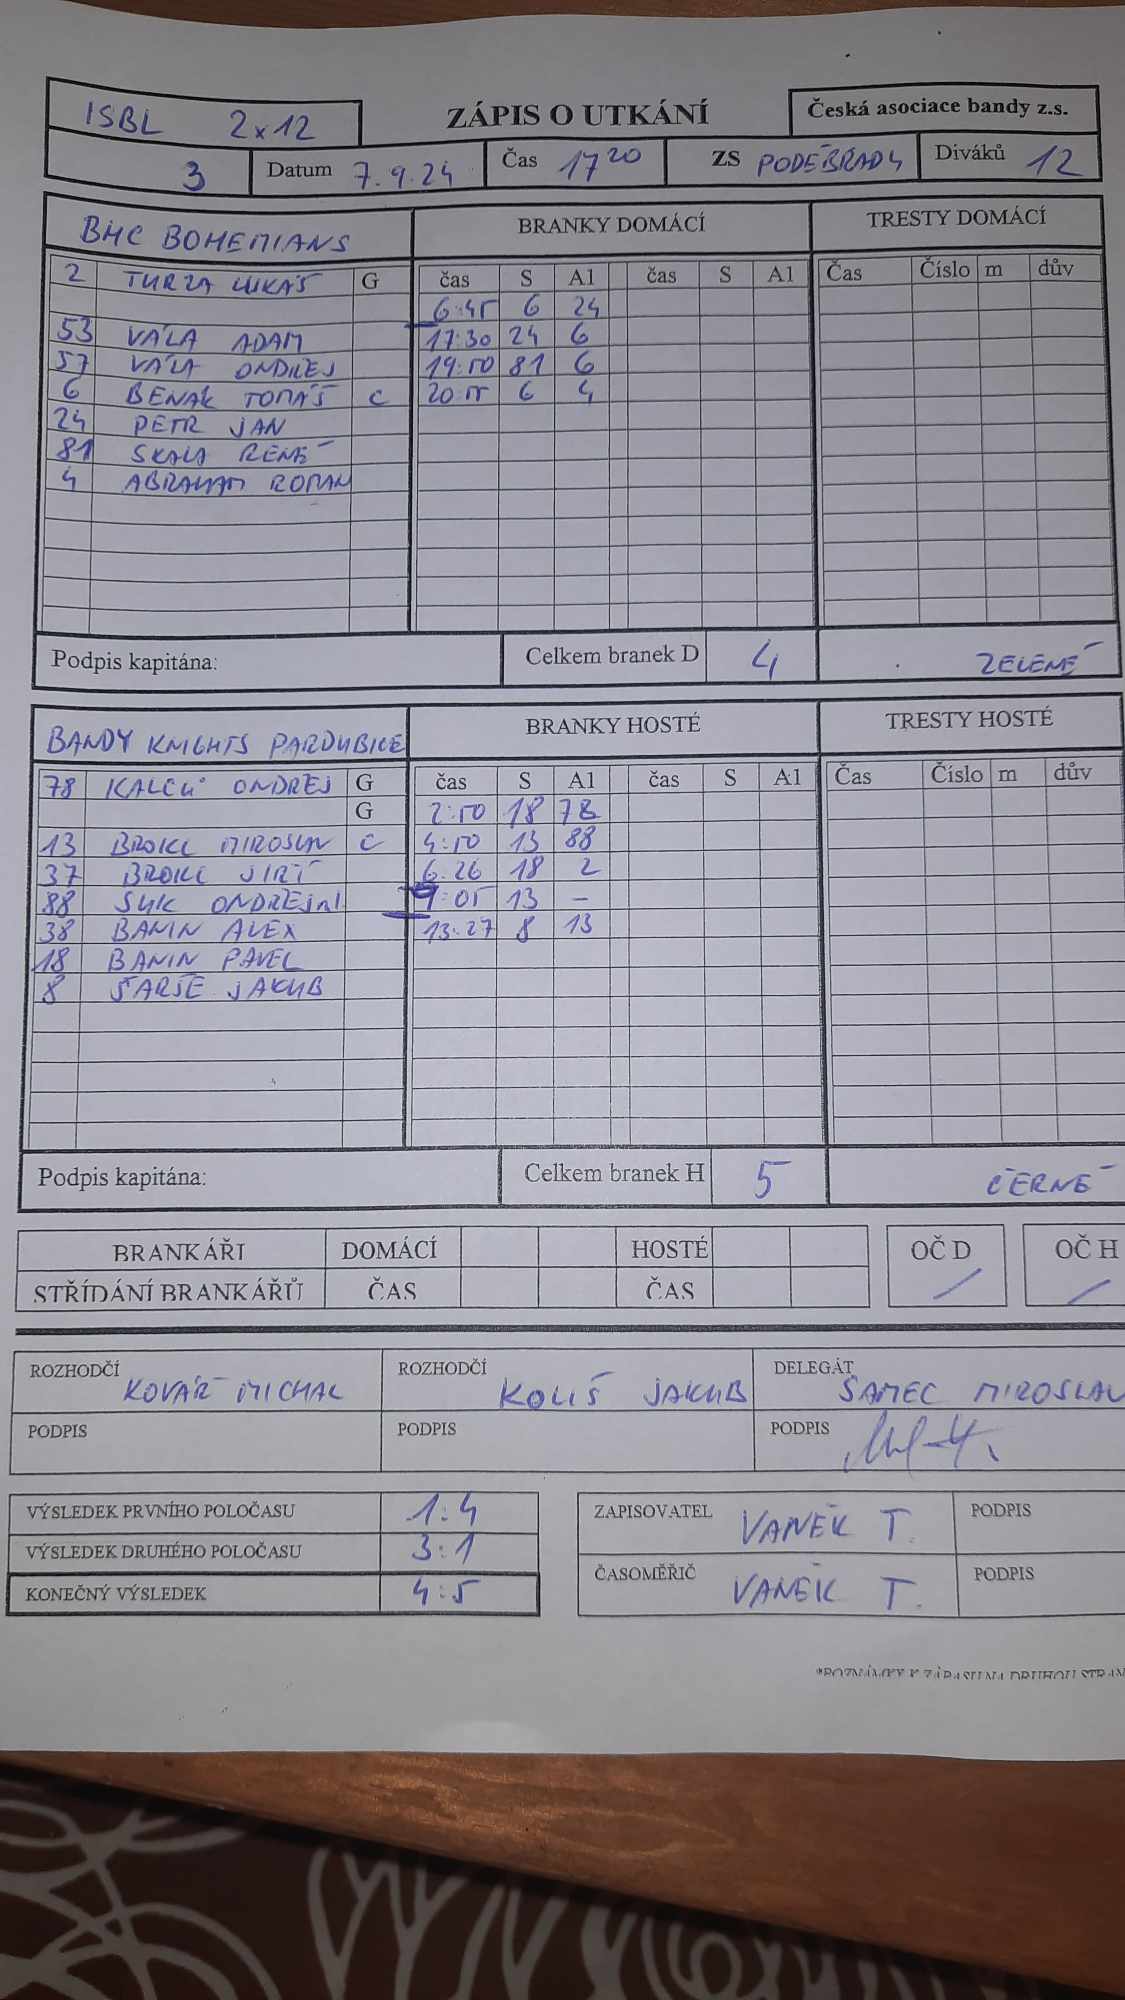 ISBL 2x12 ZÁPIS O UTKÁNÍ Česká asociace bandy z.s.
3 Datum 7.9.24 Čas 17 20 ZS PODĚBRADY Diváků 12
BHC BOHEMIANS BRANKY DOMÁCÍ TRESTY DOMÁCÍ
2 TURZA LUKÁŠ G čas S A1 čas S A1 Čas Číslo m dův
6:45 6 24
53 VÁLA ADAM 17:30 24 6
57 VÁLA ONDŘEJ 19:50 81 6
6 BENÁK TOMÁŠ C 20:55 6 4
24 PETR JAN
81 SKALA RENÉ
4 ABRAHAM ROMAN
Podpis kapitána: Celkem branek D 4 ZELENÉ
BANDY KNIGHTS PARDUBICE BRANKY HOSTÉ TRESTY HOSTÉ
78 KALCŮ ONDREJ G čas S A1 čas S A1 Čas Číslo m dův
G 2:50 18 78
13 BROKL MIROSLAV C 4:50 13 88
37 BROKL JIŘÍ 6:26 18 2
88 SUK ONDREJ 9:05 13 -
38 BANIN ALEX 13:27 8 13
18 BANIN PAVEL
8 ŠARŠE JAKUB
Podpis kapitána: Celkem branek H 5 ČERNÉ
BRANKÁŘI DOMÁCÍ HOSTÉ OČ D OČ H
STŘÍDÁNÍ BRANKÁŘŮ ČAS ČAS / /
ROZHODČÍ KOVÁŘ MICHAL ROZHODČÍ KOLIŠ JAKUB DELEGÁT SAMEC MIROSLAV
PODPIS PODPIS PODPIS
VÝSLEDEK PRVNÍHO POLOČASU 1:4 ZAPISOVATEL VANĚK T. PODPIS
VÝSLEDEK DRUHÉHO POLOČASU 3:1
KONEČNÝ VÝSLEDEK 4:5 ČASOMĚŘIČ VANĚK T. PODPIS
*POZNÁMKY K ZÁPASU NA DRUHOU STRAN